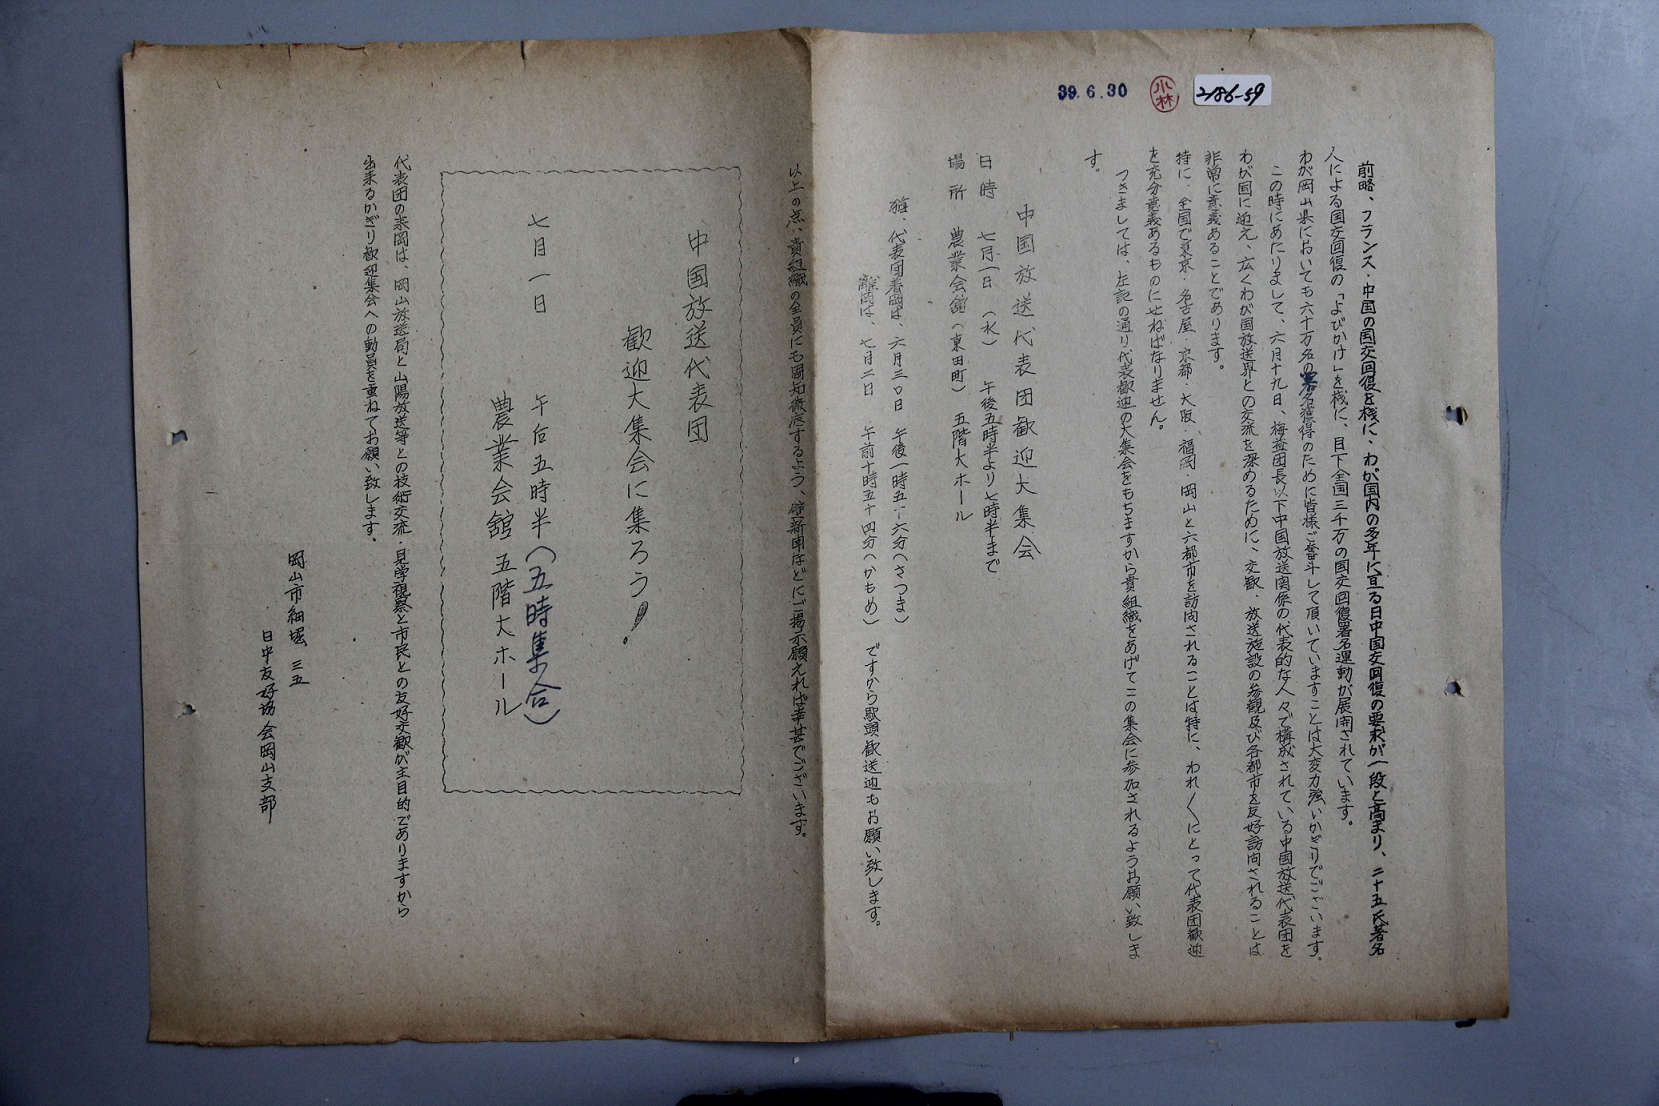 39.6.30
小林
2186-59
前略、フランス・中国の国交回復を桟に、わが国内の多年に亘る日中国交回復の要求が一段と高まり、二十五氏著名
人による国交回復の「よびかけ」を桟に、目下全国三千万の国交回復署名運動が展開されています。
わが岡山県においても六十万名の署名獲得のために皆様ご奮斗して頂いていますことは大変力強いかぎりでございます。
この時にあたりまして、六月十九日、梅益団長以下中国放送関係の代表的な人々で構成されている中国放送代表団を
わが国に迎え、広くわが国放送界との交流を深めるために、交歓、放送施設の参観及び各都市を友好訪問されることは
非常に意義あることであります。
特に、全国で東京・名古屋・京都・大阪、福岡、岡山と六都市を訪問されることは特に、われ〳〵にとって代表団歓迎
を充分意義あるものにせねばなりません。
つきましては、左記の通り代表歓迎の大集会をもちますから貴組織をあげてこの集会に参加されるようお願い致しま
す。
中国放送代表団歓迎大集会
日時 七月一日（水） 午後五時半より七時半まで
場所 農業会舘（東田町） 五階大ホール
猶、代表団着岡は、六月三〇日 午後一時五十六分（さつま）
離岡は、七月二日 午前十時五十四分（かもめ） ですから駅頭歓送迎もお願い致します。
以上の点、貴組織の全員にも周知徹底するよう、壁新聞などにご掲示願えれば幸甚でございます。
中国放送代表団
歓迎大集会に集ろう！
七月一日 午后五時半（五時集合）
農業会舘 五階大ホール
代表団の来岡は、岡山放送局と山陽放送等との技術交流・見学視察と市民との友好交歓が主目的でありますから
出来るかぎり歓迎集会への動員を重ねてお願い致します。
岡山市細堀 三五
日中友好協会岡山支部